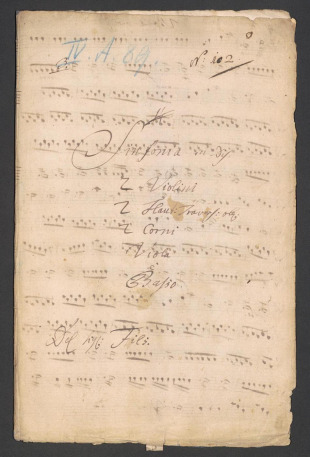 IV A 69
N: 102
Sinfonia in D
2 Violini
2 Flaut: Travers: obl:
2 Corni
Viola
Basso
Del Sig: Fils.